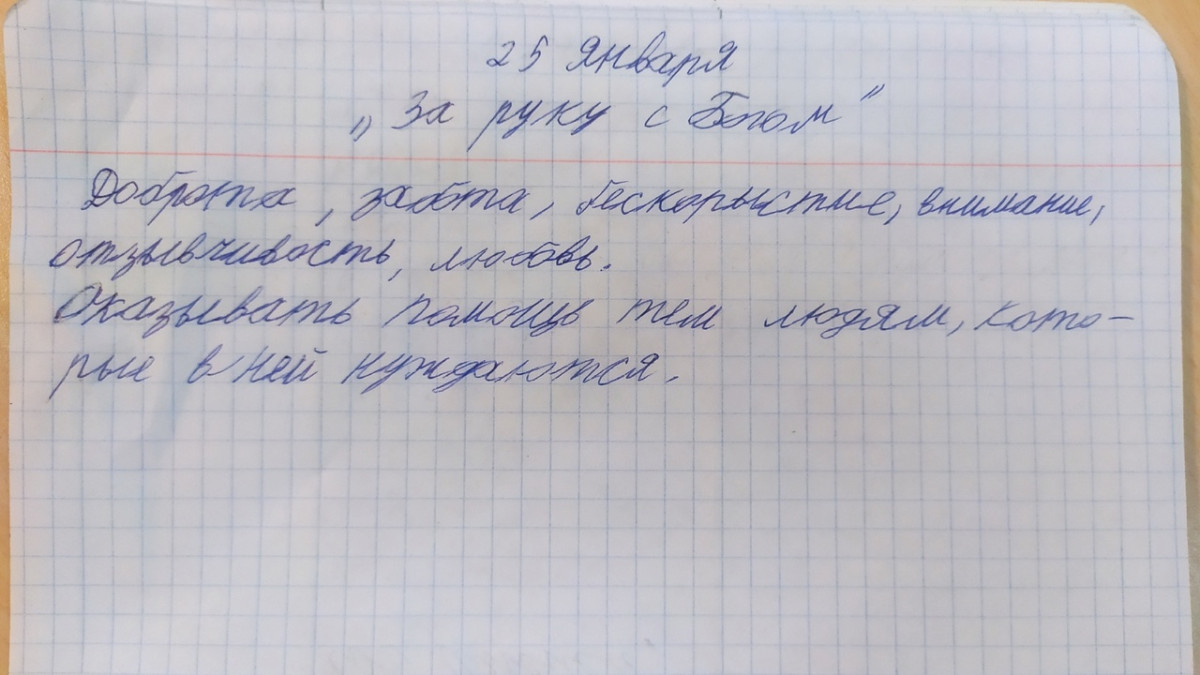 25 января
„За руку с Богом"
Доброта, забота, бескорыстие, внимание,
отзывчивость, любовь.
Оказывать помощь тем людям, кото-
рые в ней нуждаются.